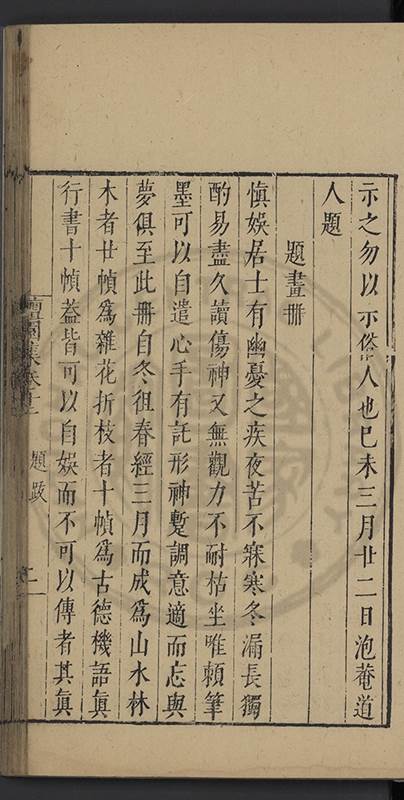 示之勿以示俗人也己未三月廿二日泡菴道
人題
題畫冊
愼娛居士有幽憂之疾夜苦不寐寒冬漏長獨
酌易盡久讀傷神又無觀力不耐枯坐唯賴筆
墨可以自遣心手有託形神蹔調意適而忘與
夢俱至此冊自冬徂春經三月而成爲山水林
木者廿幀爲雜花折枝者十幀爲古德機語眞
行書十幀葢皆可以自娛而不可以傳者其眞
檀園集卷十二 題跋